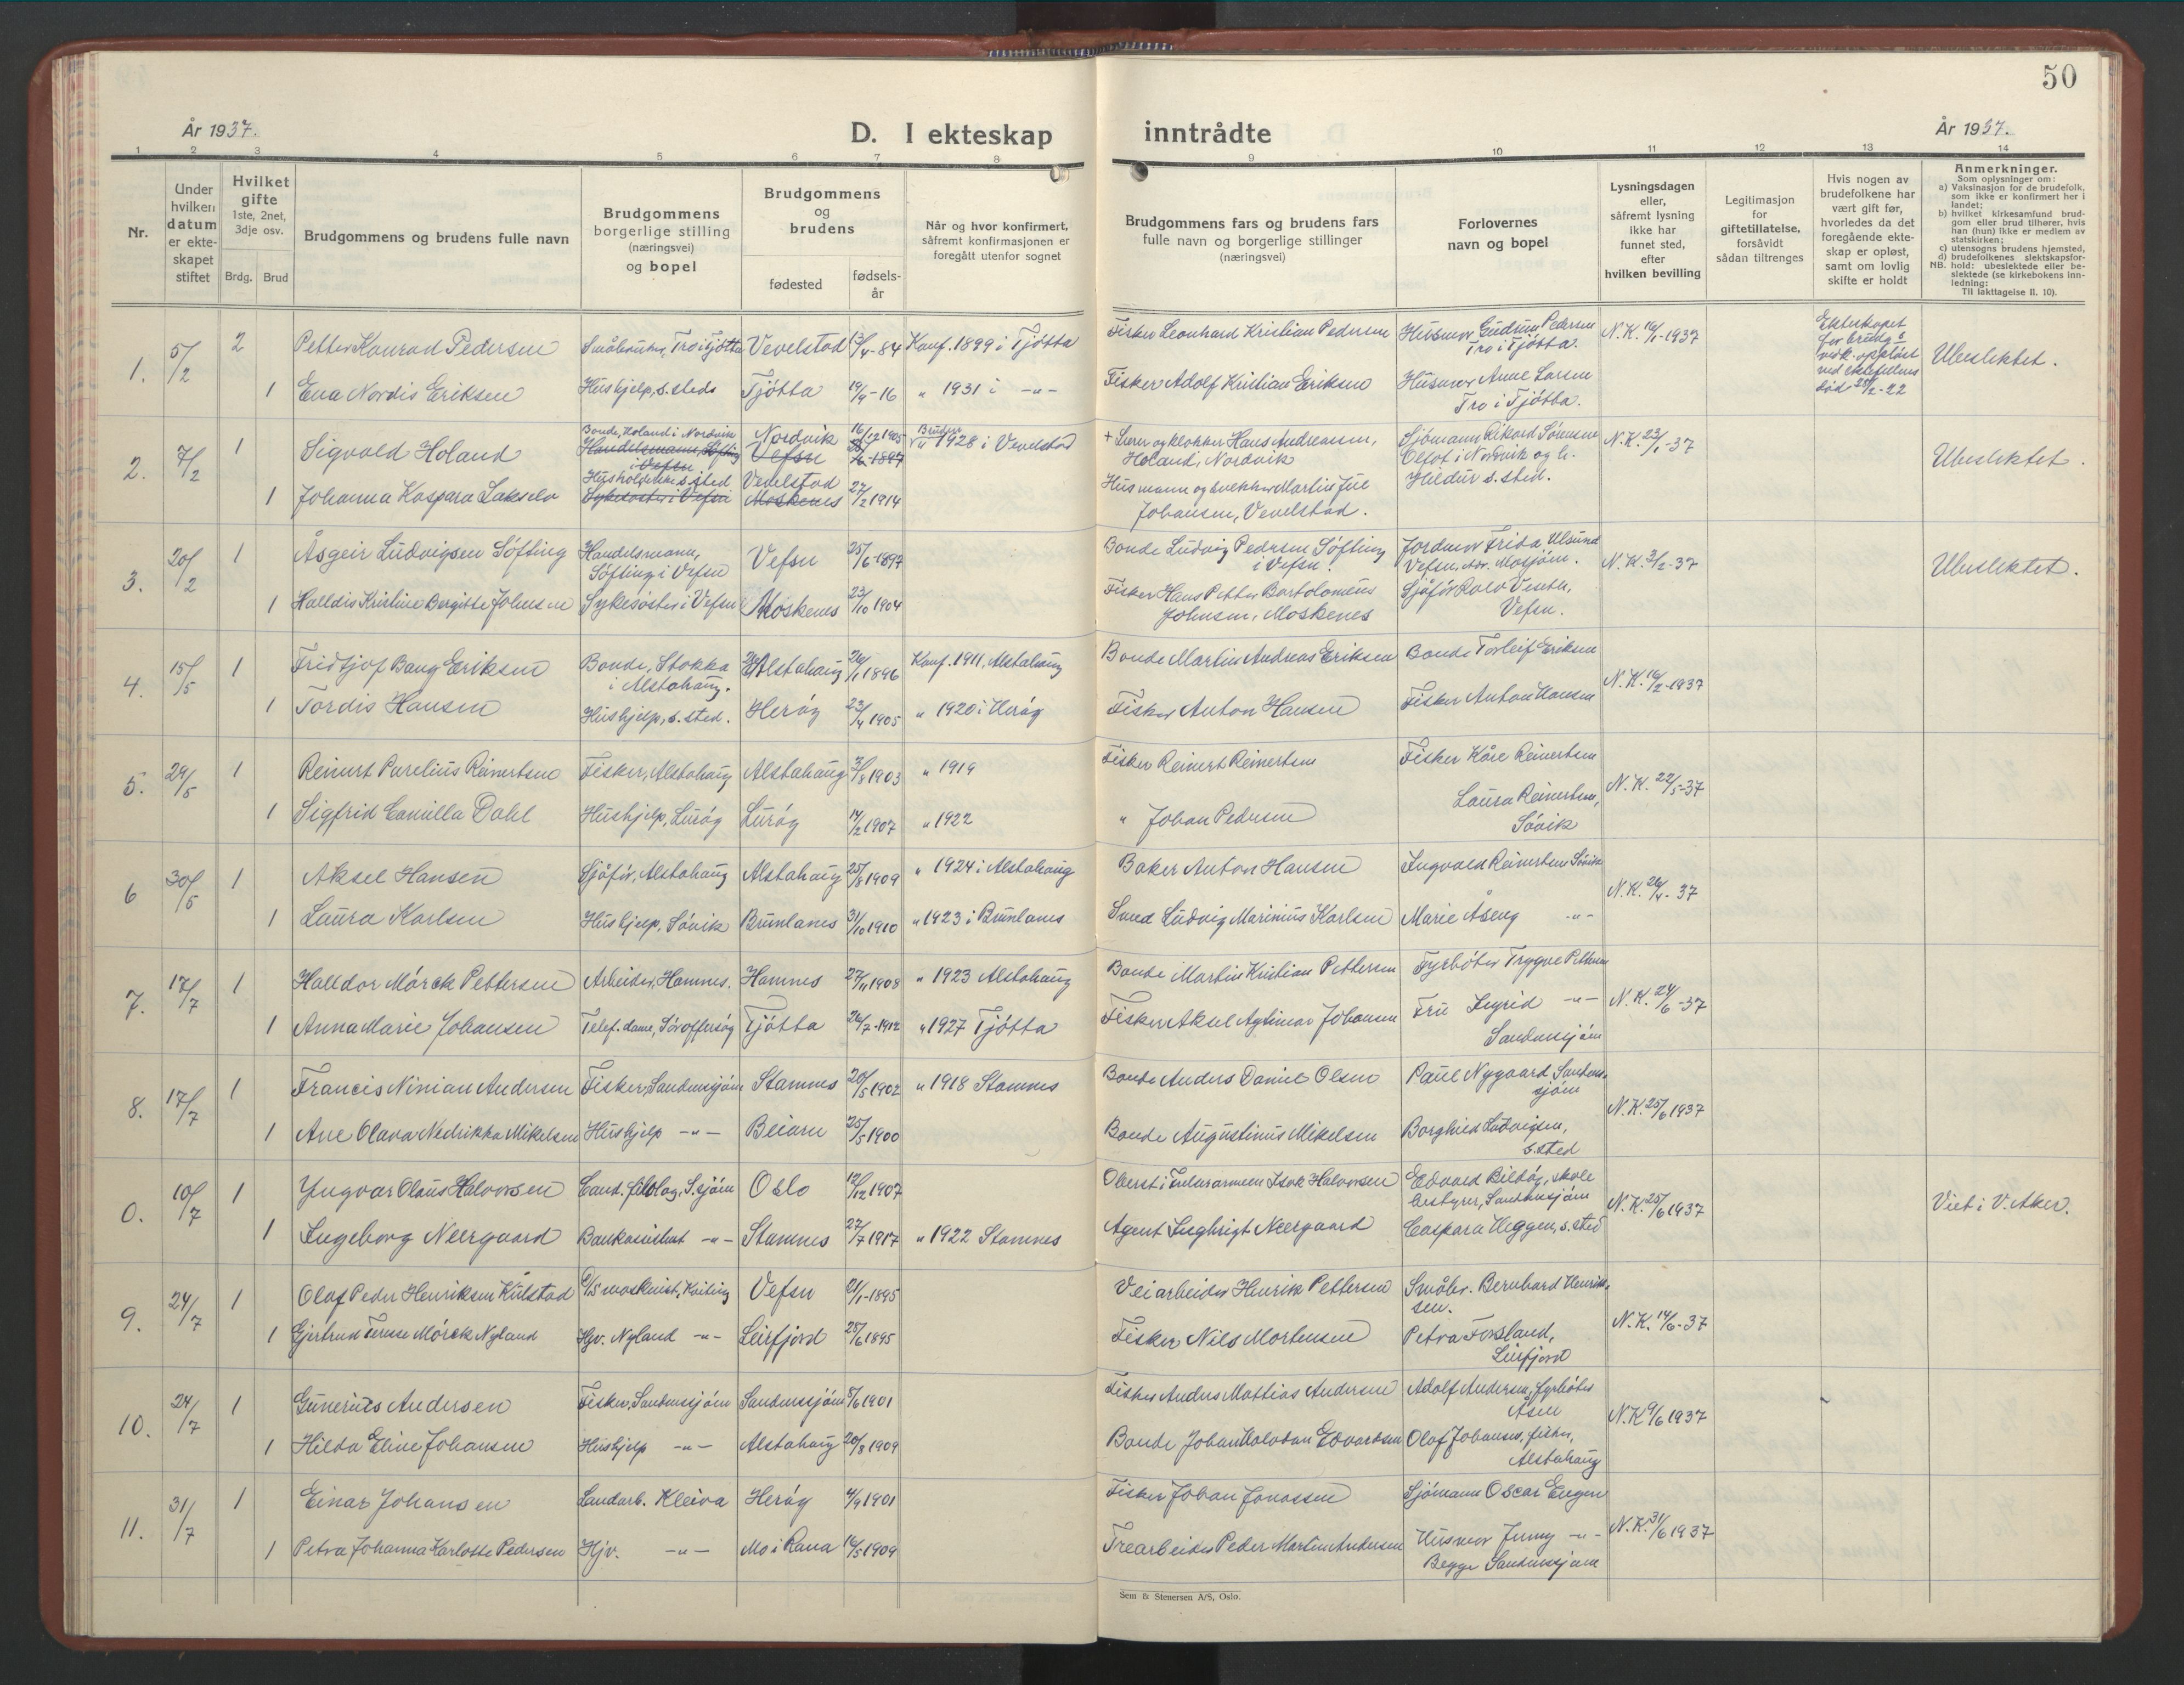 50
År 1937.
D. I ekteskap inntrådte
År 1937.
1 2 3 4 5 6 7 8 9 10 11 12 13 14
Nr.
Under hvilken datum er ekte-skapet stiftet
Hvilket gifte
1ste, 2net, 3dje osv.
Brdg. Brud
Brudgommens og brudens fulle navn
Brudgommens borgerlige stilling (næringsvei) og bopel
Brudgommens og brudens
fødested fødsels-år
Når og hvor konfirmert, såfremt konfirmasjonen er foregått utenfor sognet
Brudgommens fars og brudens fars fulle navn og borgerlige stillinger (næringsvei)
Forlovernes navn og bopel
Lysningsdagen eller, såfremt lysning ikke har funnet sted, efter hvilken bevilling
Legitimasjon for giftetillatelse, forsåvidt sådan tiltrenges
Hvis nogen av brudefolkene har vært gift før, hvorledes da det foregående ekte-skap er opløst, samt om lovlig skifte er holdt
Anmerkninger.
Som oplysninger om:
a) Vaksinasjon for de brudefolk, som ikke er konfirmert her i landet;
b) hvilket kirkesamfund brud-gom eller brud tilhører, hvis han (hun) ikke er medlem av statskirken;
c) utensogns brudens hjemsted,
d) brudefolkenes slektskapsfor-hold: ubeslektede eller be-slektede (se kirkebokens inn-ledning:
NB.
Til iakttagelse II. 10).
1. 5/2 2 Petter Konrad Pedersen Småbruker, Tro i Tjøtta Vevelstad /4-84 Konf. 1899 i Tjøtta Fisker Leonhard Kristian Pedersen Husmor Gudrun Pedersen Tro i Tjøtta N.K. 16/1-1937 Ekteskapet for brudg.s vedk. opløst ved ektefellens død 28/2-22 Ubeslektet.
1 Ena Nordis Eriksen Hushjelp, s. steds Tjøtta 19/4-16 " 1931 i -"- Fisker Adolf Kristian Eriksen Husmor Anne Larsen Tro i Tjøtta.
2. 7/2 1 Sigvald Holand Bonde, Holand i Nordvik Handelsmann, Søfting i Vefsn Nordvik Vefsn 16/12 1905 25/6-1897 Bruden " 1928 i Vevelstad + Lærer og klokker Hans Andreassen, Holand, Nordvik Sjømann Rikard Sørensen N.K. 23/1-37 Ubeslektet.
1 Johanna Kaspara Lakselv Husholderske s. sted Sykesøster i Vefsn Vevelstad Moskenes 27/2 1914 Husmann og snekker Martin Juel Johansen, Vevelstad. Hildur s. sted.
3. 20/2 1 Åsgeir Ludvigsen Søfting Handelsmann, Søfting i Vefsn Vefsn 25/6-1897 Bonde Ludvig Pedersen Søfting i Vefsn. Jordmor Frida Ulsund Vefsn, adr. Mosjøen. N.K. 3/2-37 Ubeslektet.
1 Halldis Kristine Bergitte Johnsen Sykesøster i Vefsn Moskenes 23/10 1904 Fisker Hans Petter Bartolomeus Johnsen, Moskenes Sjåfør Rolv Veseth, Vefsn.
4. 15/5 1 Fridtjof Bang Eriksen Bonde, Stokka i Alstahaug. Alstahaug 26/1 1896 Konf. 1911, Alstahaug Bonde Martin Andreas Eriksen Bonde Torleif Eriksen N.K. 16/2-1937
1 Tordis Hansen Hushjelp, s. sted. Herøy 23/4 1905 " 1920 i Herøy Fisker Anton Hansen Fisker Anton Hansen
5. 29/5 1 Reinert Parelius Reinertsen Fisker, Alstahaug Alstahaug 3/8 1903 " 1919 Fisker Reinert Reinertsen Fisker Kåre Reinertsen N.K. 22/5-37
1 Sigfrid Camilla Dahl Hushjelp, Lurøy Lurøy 14/2 1907 " 1922 " Johan Pedersen Laura Reinertsen, Søvik
6 30/5 1 Aksel Hansen Sjåfør, Alstahaug Alstahaug 25/8 1909 " 1924 i Alstahaug Baker Anton Hansen Ingvald Reinertsen Søvik N.K. 26/4-37
1 Laura Karlsen Hushjelp, Søvik Brunlanes 31/10 1910 " 1923 i Brunlanes Smed Ludvig Marinius Karlsen Marie Åseng -"-
7. 17/7 1 Halldor Mørck Pettersen Arbeider, Hamnes. Hamnes 27/11 1908 " 1923 Alstahaug Bonde Martin Kristian Pettersen Fyrbøter Trygve Pettersen N.K. 24/6-37
1 Anna Marie Johansen Telef.dame, Sør Offersøy Tjøtta 26/7-1912 " 1927 Tjøtta Fisker Aksel Agtinar Johansen Fru Ingrid -"- Sandnessjøen
8. 17/7 1 Francis Ninian Andersen Fisker, Sandnessjøen Stamnes 20/5 1902 " 1918 Stamnes Bonde Anders Daniel Olsen Paul Nygaard Sandnes-sjøen N.K. 25/6 1937
1 Ane Olava Nedrikka Mikelsen Hushjelp -"- Beiarn 25/5 1900 Bonde Augustinus Mikelsen Borghild Ludvigsen, s. sted
0. 10/7 1 Yngvar Olaus Halvorsen Cand. filolog, S.sjøen Oslo 12/12 1907 Oberst i Frelsesarmeen Isak Halvorsen Edvard Bildøy, skolebestyrer, Sandnessjøen N.K. 25/6 1937 Viet i V. Aker.
1 Ingeborg Neergaard Bankassistent -"- Stamnes 27/7 1917 " 1922 Stamnes Agent Ingbrigt Neergaard Caspara Heggen, s. sted
9. 24/7 1 Olaf Peder Henriksen Kulstad D/S maskinist, Kviting Vefsn 21/1-1895 Veiarbeider Henrik Pettersen Småbr. Bernhard Henrik-sen. N.K. 14/6-37
1 Gjertrud Terese Mørck Nyland Hjv. Nyland -"- Leirfjord 25/6 1895 Fisker Nils Mortensen Petra Forsland, Leirfjord
10. 24/7 1 Gunerius Andersen Fisker, Sandnessjøen Sandnessjøen 5/6 1901 Fisker Anders Mathias Andersen Adolf Andersen, fyrbøter Åsen N.K. 9/6 1937
1 Hilda Eline Johansen Hushjelp -"- Alstahaug 20/8 1909 Bonde Johan Halvdan Edvardsen Olaf Johansen, fisker, Alstahaug
11. 31/7 1 Einar Johansen Landarb. Kleiva Herøy 4/9 1901 Fisker Johan Jonassen Sjømann Oscar Engen N.K. 31/6 1937
1 Petra Johanna Karlotte Pedersen Hjv. -"- Mo i Rana 16/5 1909 Trearbeider Peder Martin Andersen Husmor Jenny -"- Begge Sandnessjøen
Sem & Stenersen A/S, Oslo.